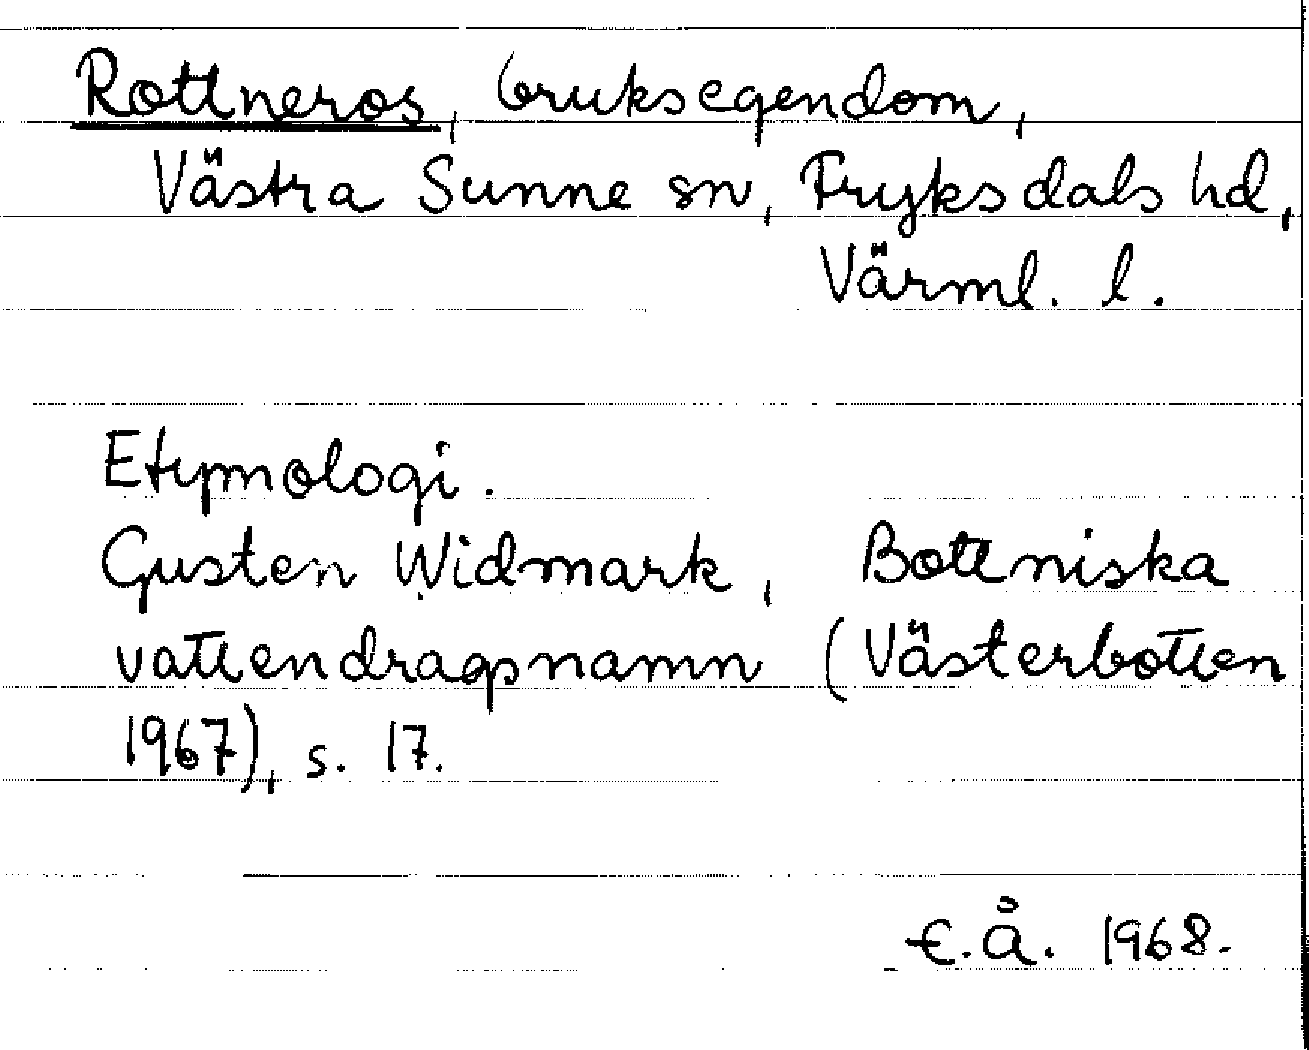 Rottneros, bruksegendom,
Västra Sunne sn, Fryksdals hd,
Värml. l.
Etymologi.
Gusten Widmark, Bottniska
vattendragsnamn (Västerbotten
1967), s. 17.
E.Å. 1968.